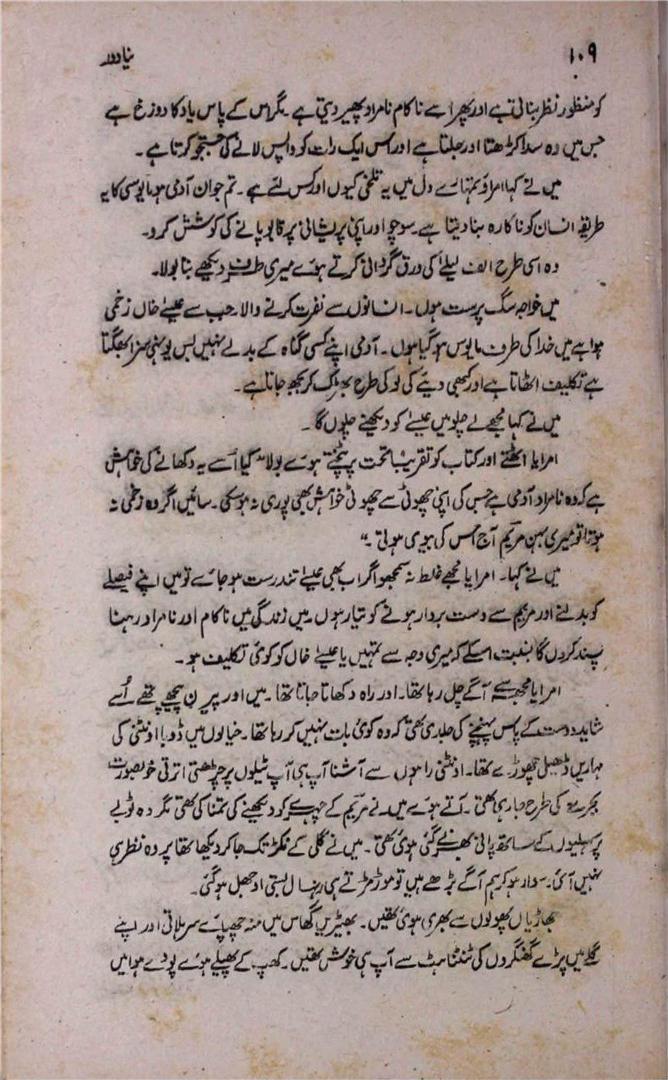 ۱۰۹ نیا دور
کو منظور نظر بناتی ہے اور پھر اسے ناکام نامراد پھیر دیتی ہے۔ مگر اس کے پاس یاد کا دوزخ ہے
جس میں وہ سدا کڑھتا اور جلتا ہے اور اس ایک رات کو واپس لانے کی جستجو کرتا ہے۔
میں نے کہا امراؤ تمہارے دل میں یہ تلخی کیوں اور کس لئے ہے۔ تم جوان آدمی ہو مایوسی کا یہ
طریقہ انسان کو ناکارہ بنا دیتا ہے۔ سوچو اور اپنی پریشانی پر قابو پانے کی کوشش کرو۔
وہ اسی طرح الف لیلیٰ کی ورق گردانی کرتے ہوئے میری طرف دیکھے بنا بولا۔
میں خواجہ سگ پرست ہوں۔ انسانوں سے نفرت کرنے والا۔ جب سے عیسےٰ خاں زخمی
ہوا ہے میں خدا کی طرف مایوس ہو گیا ہوں۔ آدمی اپنے کسی گناہ کے بدلے نہیں بس یونہی سزا بھگتتا
ہے تکلیف اٹھاتا ہے اور کبھی دیئے کی لو کی طرح بھڑک کر بجھ جاتا ہے۔
میں نے کہا مجھے لے چلو میں عیسےٰ کو دیکھنے چلوں گا۔
امرایا اٹھتے اور کتاب کو تقریباً تخت پر پٹختے ہوئے بولا "کیا اسے یہ دکھانے کی خواہش
ہے کہ وہ نامراد آدمی ہے جس کی اپنی چھوٹی سے چھوٹی خواہش بھی پوری نہ ہو سکی۔ سائیں اگر وہ زخمی نہ
ہوتا تو میری بہن مریم آج اس کی بیوی ہوتی۔"
میں نے کہا۔ امرایا مجھے غلط نہ سمجھو اگر اب بھی عیسےٰ تندرست ہو جائے تو میں اپنے فیصلے
کو بدلنے اور مریم سے دست بردار ہونے کو تیار ہوں۔ میں زندگی میں ناکام اور نامراد رہنا
پسند کروں گا بنسبت اسکے کہ میری وجہ سے تمہیں یا عیسےٰ خاں کو کوئی تکلیف ہو۔
امرایا مجھ سے آگے چل رہا تھا۔ اور راہ دکھاتا جاتا تھا۔ میں اور پیرن پیچھے تھے اُسے
شاید دوست کے پاس پہنچنے کی جلدی تھی کہ وہ کوئی بات نہیں کر رہا تھا۔ خیالوں میں ڈوبا اونٹنی کی
مہاریں ڈھیل چھوڑے تھا۔ اونٹنی راہوں سے آشنا آپ ہی آپ ٹیلوں پر چڑھتی اترتی خوبصورت
بجرے کی طرح جا رہی تھی۔ آتے ہوئے میں نے مریم کے چہرے کو دیکھنے کی تمنا کی تھی مگر وہ ٹوبے
پر سہیلیوں کے ساتھ پانی بھرنے گئی ہوئی تھی۔ میں نے گلی کے نکڑ تک جا کر دیکھا تھا پر وہ نظر ہی
نہیں آئی۔ سوار ہو کر ہم آگے بڑھے ہیں تو موڑ مڑتے ہی بستی اوجھل ہو گئی۔
جھاڑیاں پھولوں سے بھری ہوئی تھیں۔ بھیڑیں گھاس میں منہ چھپائے سر ہلاتی اور اپنے
گلے میں پڑے گھنگروں کی ٹنٹناہٹ سے آپ ہی خوش تھیں۔ کھپ کے پھیلے ہوئے پودے ہوا میں